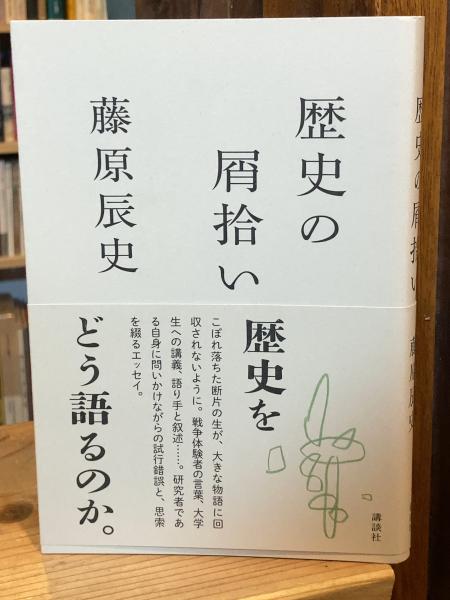 歴史の
屑拾い
藤原辰史
歴史を
どう語るのか。
こぼれ落ちた断片の生が、大きな物語に回
収されないように。戦争体験者の言葉、大学
生への講義、語り手と叙述……。研究者であ
る自身に問いかけながらの試行錯誤と、思索
を綴るエッセイ。
講談社
歴史の屑拾い
藤原辰史